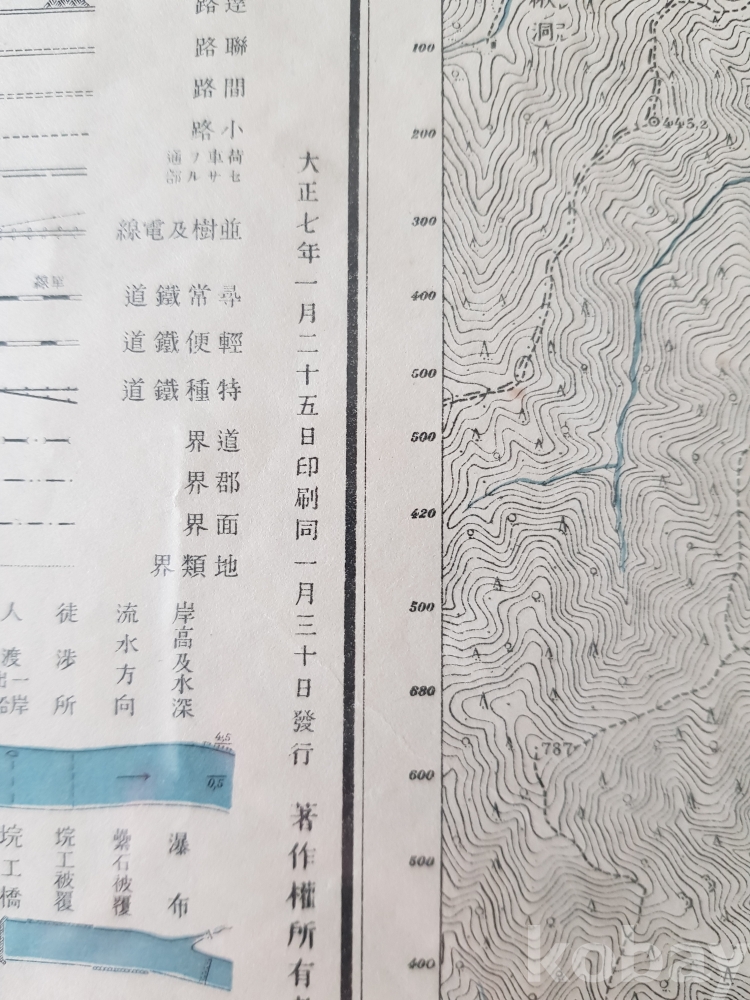 達路
聯路
間路
小路
荷車ヲ通
セサル部
並樹及電線
單線
尋常鐵道
輕便鐵道
特種鐵道
道界
郡界
面界
地類界
岸高及水深
流水方向
徒渉所
人渡
一岸
4,5
0,5
瀑布
石被覆
垸工被覆
垸工橋
大正七年一月二十五日印刷同一月三十日發行
著作權所有
100
200
300
400
500
500
420
500
680
600
500
400
洞
445,2
787
kobay